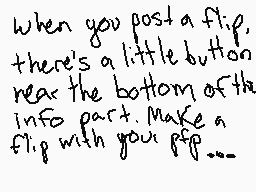 when you post a flip,
there's a little button
near the bottom of the
info part. Make a
flip with your pfp...